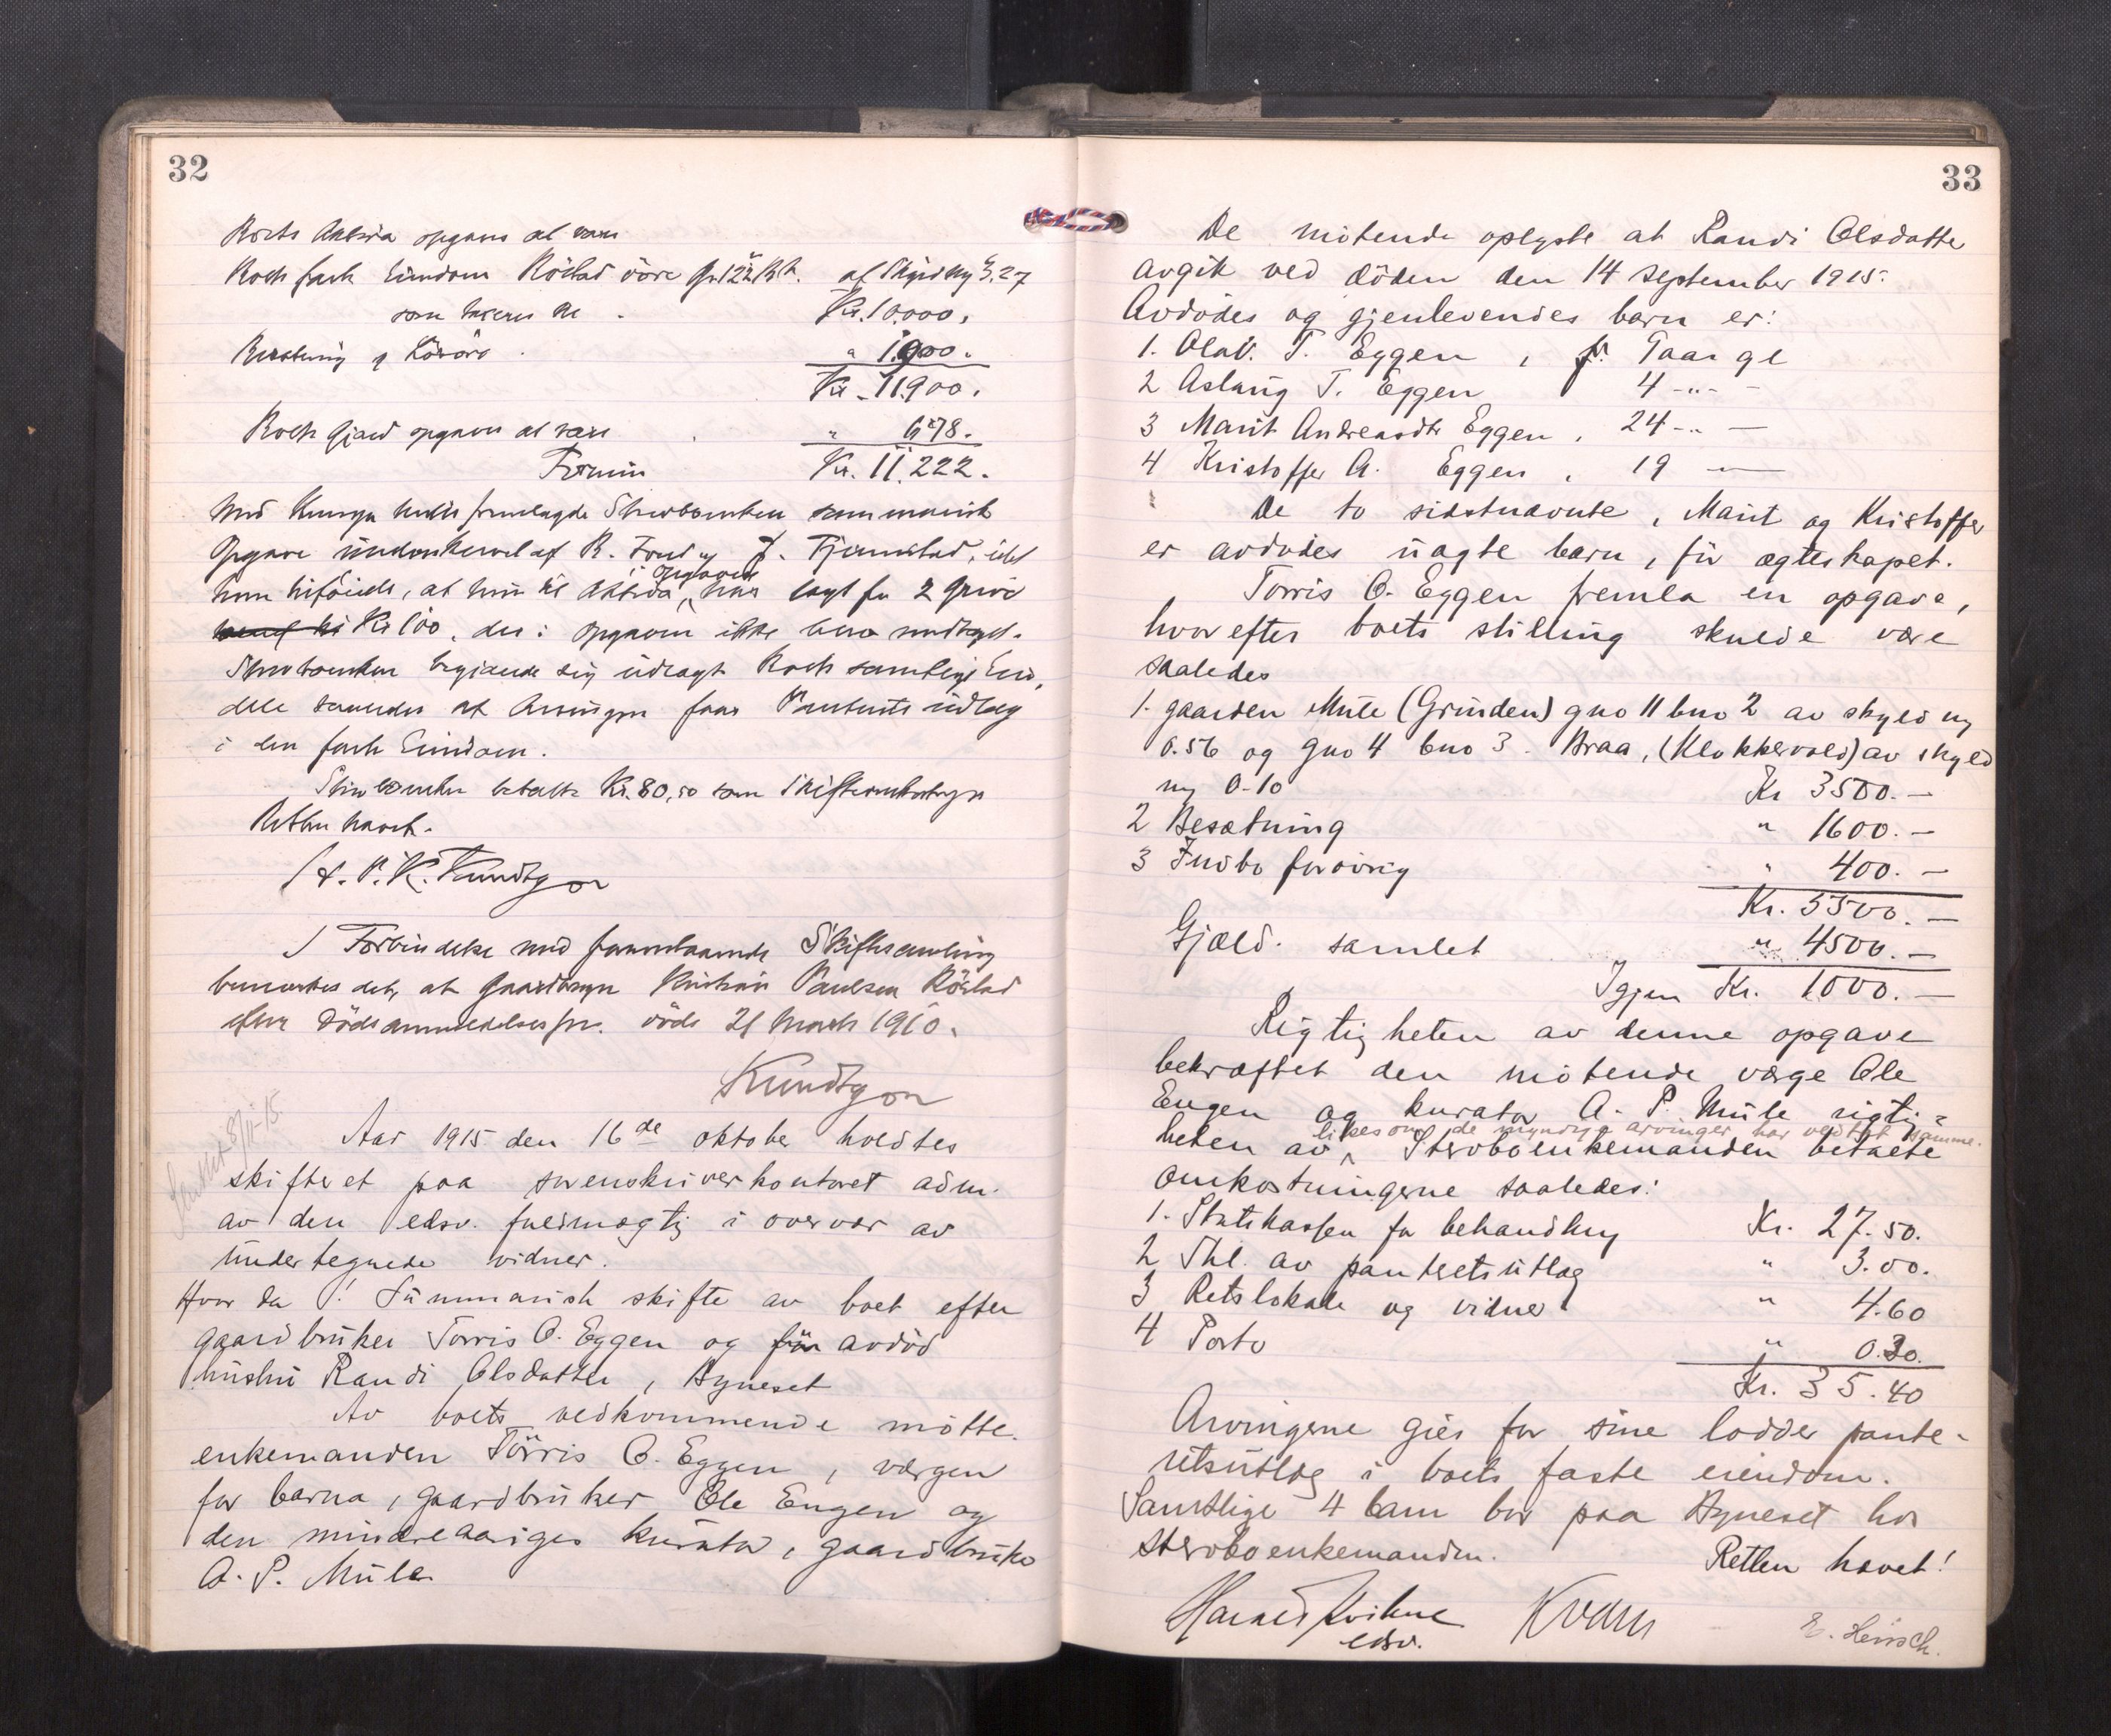 32
Boets Aktiva opgaves at være
Boets faste Eiendom Röstad övre Gr. 122, B 2. af Skyld My 3.27
som takeres til . Kr. 10.000.
Besætning & Lösöre . " 1.900.
Kr. 11.900.
Boets Gjæld opgaves at være . " 678.
Formue Kr. 11.222.
opgave underskrevet af R. Fond og J. Tjernstad, idet
hun tilföiede, at hun til Aktiva i opgaven har lagt for 2 Grise
Kr 100, der i opgaven ikke blev medtaget.
Stervboenken begjærede sig udlagt Boets samtlige Eien-
dele saaledes at Arvingen faar Panterets udlæg
i den faste Eiendom.
Stervboenken betalte Kr. 80,50 som Skifteomkostninger
Retten hævet.
H. P. K. Kundtzon
I Forbindelse med foranstaaende Skiftesamling
bemærkes det, at Gaardbruger Kristian Paulsen Röstad
efter Dödsanmeldelsespr. döde 21 Marts 1910.
Kundtzon
8/11-15
Aar 1915 den 16de oktober holdtes
skifteret paa sorenskriverkontoret adm.
av den edsv. fuldmægtig i overvær av
undertegnede vidner.
Hvor da! Summarisk skifte av boet efter
gaardbruker Törris O. Eggen og avdöd
hustru Randi Olsdatter, Byneset
Av boets vedkommende mötte
enkemanden Törris O. Eggen, værgen
for barna, gaardbruker Ole Engen og
den mindreaariges kurator, gaardbruker
A. P. Müle
33
De mötende oplyste at Randi Olsdatter
avgik ved döden den 14 september 1915.
Avdödes og gjenlevendes barn er:
1. Olav. T. Eggen, 7 aar gl
2 Aslaug T. Eggen 4 -"- -
3 Marit Andreasdtr Eggen, 24 -"- -
4 Kristoffer A. Eggen, 19 -"-
De to sidstnævnte, Marit og Kristoffer
er avdödes uægte barn, för ægteskapet.
Törris O. Eggen fremla en opgave,
hvorefter boets stilling skulde være
saaledes
1. gaarden Müle (Grinden) gno 11 bno 2 av skyld my
0.56 og gno 4 bno 3. Braa, (Klokkervold) av skyld
my 0-10 Kr 3500.-
2 Besætning " 1600.-
3 Indbo forövrig " 400.-
Kr. 5500.-
Gjæld. samlet " 4500.-
Igjen Kr. 1000.-
Rigtigheten av denne opgave
bekræftet den mötende værge Ole
Engen og kurator A. P. Müle rigtig-
likesom de myndige arvinger har vedtat samme.
heten av. Stervboenkemanden betalte
omkostningerne saaledes:
1. Statskassen for behandling Kr. 27.50.
2 Thl. av panteretsutlæg " 3.00.
3 Retslokale og vidner " 4.60
4 Porto " 0.30.
Kr. 35.40
Arvingerne gies for sine lodder pante-
retsutlæg i boets faste eiendom.
Samtlige 4 barn bor paa Byneset hos
stervboenkemanden. Retten hævet!
edsv. Kvam E. Hirsch.